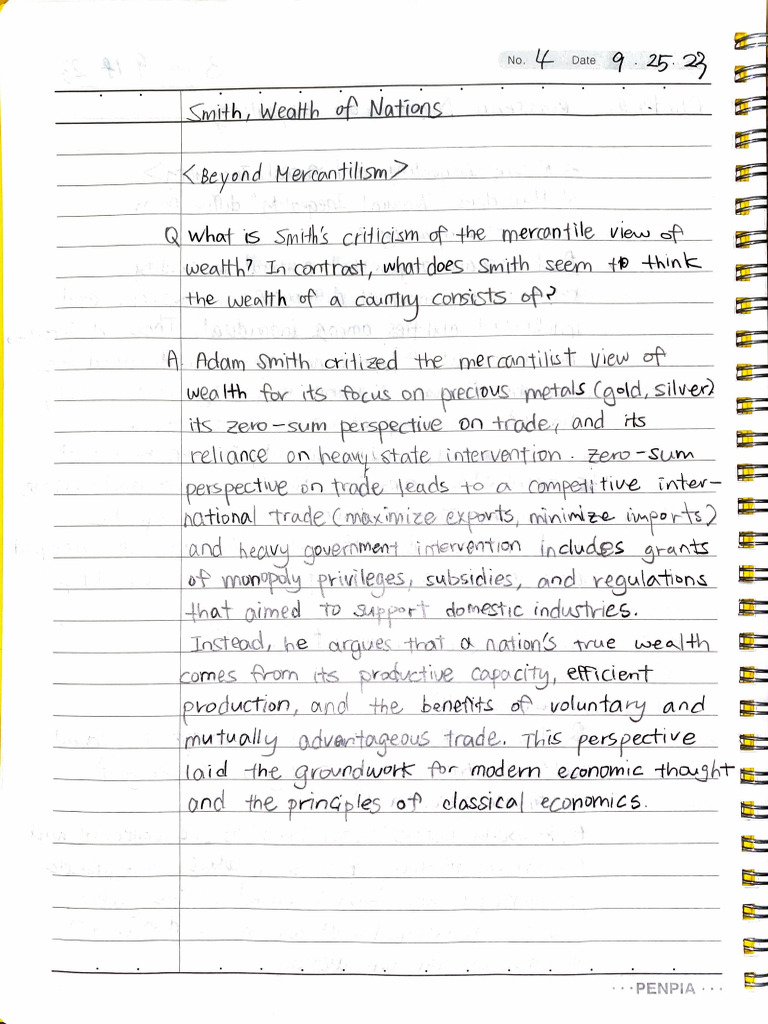 No. 4 Date 9. 25. 23
Smith, Wealth of Nations
<Beyond Mercantilism>
Q What is Smith's criticism of the mercantile view of
wealth? In contrast, what does Smith seem to think
the wealth of a country consists of?
A Adam Smith critized the mercantilist view of
wealth for its focus on precious metals (gold, silver)
its zero-sum perspective on trade, and its
reliance on heavy state intervention. Zero-sum
perspective on trade leads to a competitive inter-
national trade (maximize exports, minimize imports)
and heavy government intervention includes grants
of monopoly privileges, subsidies, and regulations
that aimed to support domestic industries.
Instead, he argues that a nation's true wealth
comes from its productive capacity, efficient
production, and the benefits of voluntary and
mutually advantageous trade. This perspective
laid the groundwork for modern economic thought
and the principles of classical economics.
···PENPIA···